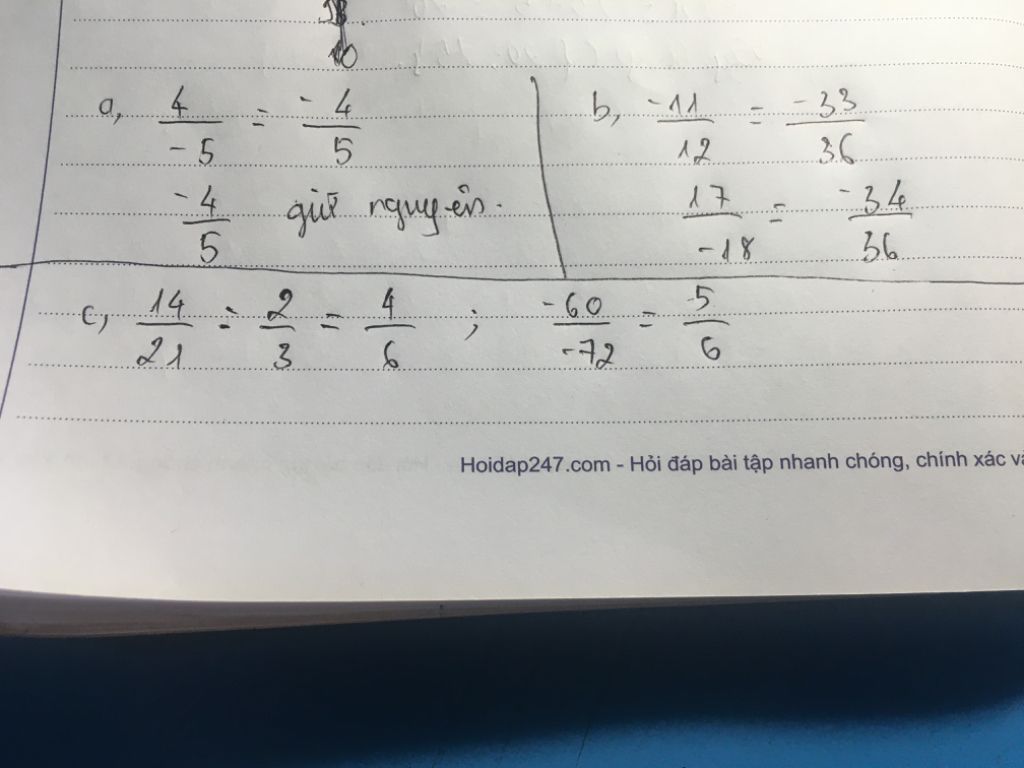 a, 4/-5 = -4/5
-4/5 giữ nguyên.
b, -11/12 = -33/36
17/-18 = -34/36
c, 14/21 = 2/3 = 4/6 ; -60/-72 = 5/6
Hoidap247.com - Hỏi đáp bài tập nhanh chóng, chính xác và